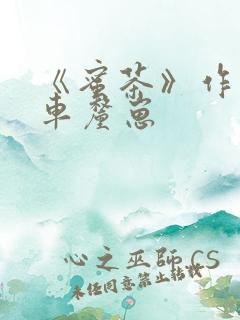 《蜜茶》作
車釐崽
心之巫師 CS
未任同意禁止转载